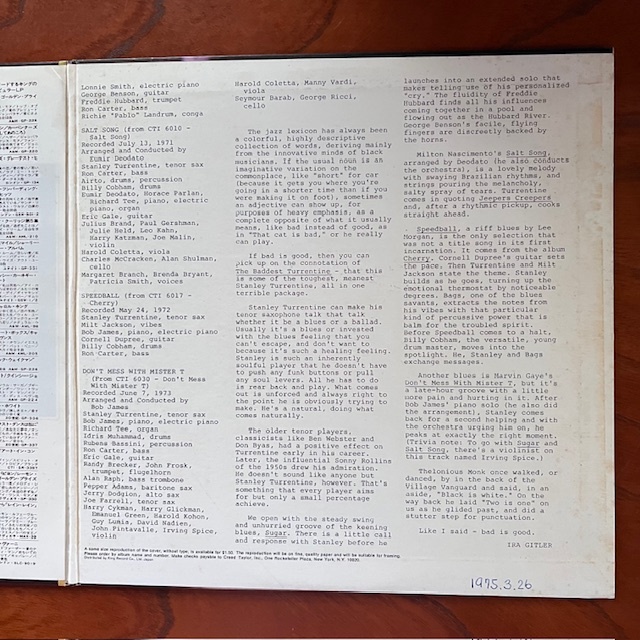 Lonnie Smith, electric piano
George Benson, guitar
Freddie Hubbard, trumpet
Ron Carter, bass
Richie "Pablo" Landrum, conga
SALT SONG (from CTI 6010 -
Salt Song)
Recorded July 13, 1971
Arranged and Conducted by
Eumir Deodato
Stanley Turrentine, tenor sax
Ron Carter, bass
Airto, drums, percussion
Billy Cobham, drums
Eumir Deodato, Horace Parlan,
Richard Tee, piano, electric
piano, organ
Eric Gale, guitar
Julius Brand, Paul Gershman,
Julie Held, Leo Kahn,
Harry Katzman, Joe Malin,
violin
Harold Coletta, viola
Charles McCracken, Alan Shulman,
cello
Margaret Branch, Brenda Bryant,
Patricia Smith, voices
SPEEDBALL (from CTI 6017 -
Cherry)
Recorded May 24, 1972
Stanley Turrentine, tenor sax
Milt Jackson, vibes
Bob James, piano, electric piano
Cornell Dupree, guitar
Billy Cobham, drums
Ron Carter, bass
DON'T MESS WITH MISTER T
(From CTI 6030 - Don't Mess
With Mister T)
Recorded June 7, 1973
Arranged and Conducted by
Bob James
Stanley Turrentine, tenor sax
Bob James, piano, electric piano
Richard Tee, organ
Idris Muhammad, drums
Rubens Bassini, percussion
Ron Carter, bass
Eric Gale, guitar
Randy Brecker, John Frosk,
trumpet, flugelhorn
Alan Raph, bass trombone
Pepper Adams, baritone sax
Jerry Dodgion, alto sax
Joe Farrell, tenor sax
Harry Cykman, Harry Glickman,
Emanuel Green, Harold Kohon,
Guy Lumia, David Nadien,
John Pintavalle, Irving Spice,
violin
Harold Coletta, Manny Vardi,
viola
Seymour Barab, George Ricci,
cello
The jazz lexicon has always been
a colorful, highly descriptive
collection of words, deriving mainly
from the innovative minds of black
musicians. If the usual noun is an
imaginative variation on the
commonplace, like "short" for car
(because it gets you where you're
going in a shorter time than if you
were making it on foot), sometimes
an adjective can show up, for
purposes of heavy emphasis, as a
complete opposite of what it usually
means, like bad instead of good, as
in "That cat is bad," or he really
can play.
If bad is good, then you can
pick up on the connotation of
The Baddest Turrentine - that this
is some of the toughest, meanest
Stanley Turrentine, all in one
terrible package.
Stanley Turrentine can make his
tenor saxophone talk that talk
whether it be a blues or a ballad.
Usually it's a blues or invested
with the blues feeling that you
can't escape, and don't want to
because it's such a healing feeling.
Stanley is such an inherently
soulful player that he doesn't have
to push any funk buttons or pull
any soul levers. All he has to do
is rear back and play. What comes
out is unforced and always right to
the point he is obviously trying to
make. He's a natural, doing what
comes naturally.
The older tenor players,
classicists like Ben Webster and
Don Byas, had a positive effect on
Turrentine early in his career.
Later, the influential Sonny Rollins
of the 1950s drew his admiration.
He doesn't sound like anyone but
Stanley Turrentine, however. That's
something that every player aims
for but only a small percentage
achieve.
We open with the steady swing
and unhurried groove of the keening
blues, Sugar. There is a little call
and response with Stanley before he
launches into an extended solo that
makes telling use of his personalized
"cry." The fluidity of Freddie
Hubbard finds all his influences
coming together in a pool and
flowing out as the Hubbard River.
George Benson's facile, flying
fingers are discreetly backed by
the horns.
Milton Nascimento's Salt Song,
arranged by Deodato (he also conducts
the orchestra), is a lovely melody
with swaying Brazilian rhythms, and
strings pouring the melancholy,
salty spray of tears. Turrentine
comes in quoting Jeepers Creepers
and, after a rhythmic pickup, cooks
straight ahead.
Speedball, a riff blues by Lee
Morgan, is the only selection that
was not a title song in its first
incarnation. It comes from the album
Cherry. Cornell Dupree's guitar sets
the pace. Then Turrentine and Milt
Jackson state the theme. Stanley
builds as he goes, turning up the
emotional thermostat by noticeable
degrees. Bags, one of the blues
savants, extracts the notes from
his vibes with that particular
kind of percussive power that is
balm for the troubled spirit.
Before Speedball comes to a halt,
Billy Cobham, the versatile, young
drum master, moves into the
spotlight. He, Stanley and Bags
exchange messages.
Another blues is Marvin Gaye's
Don't Mess With Mister T, but it's
a late-hour groove with a little
more pain and hurting in it. After
Bob James' piano solo (he also did
the arrangement), Stanley comes
back for a second helping and with
the orchestra urging him on, he
peaks at exactly the right moment.
(Trivia note: To go with Sugar and
Salt Song, there's a violinist on
this track named Irving Spice.)
Thelonious Monk once walked, or
danced, by in the back of the
Village Vanguard and said, in an
aside, "Black is white." On the
way back he laid "Two is one" on
us as he glided past, and did a
stutter step for punctuation.
Like I said - bad is good.
IRA GITLER
A same size reproduction of the cover, without type, is available for $1.50. The reproduction will be on fine, quality paper and will be suitable for framing.
Please order by album name and number. Make checks payable to Creed Taylor, Inc., One Rockefeller Plaza, New York, N.Y. 10020.
Distributed by King Record Co., Ltd. Japan
1975.3.26